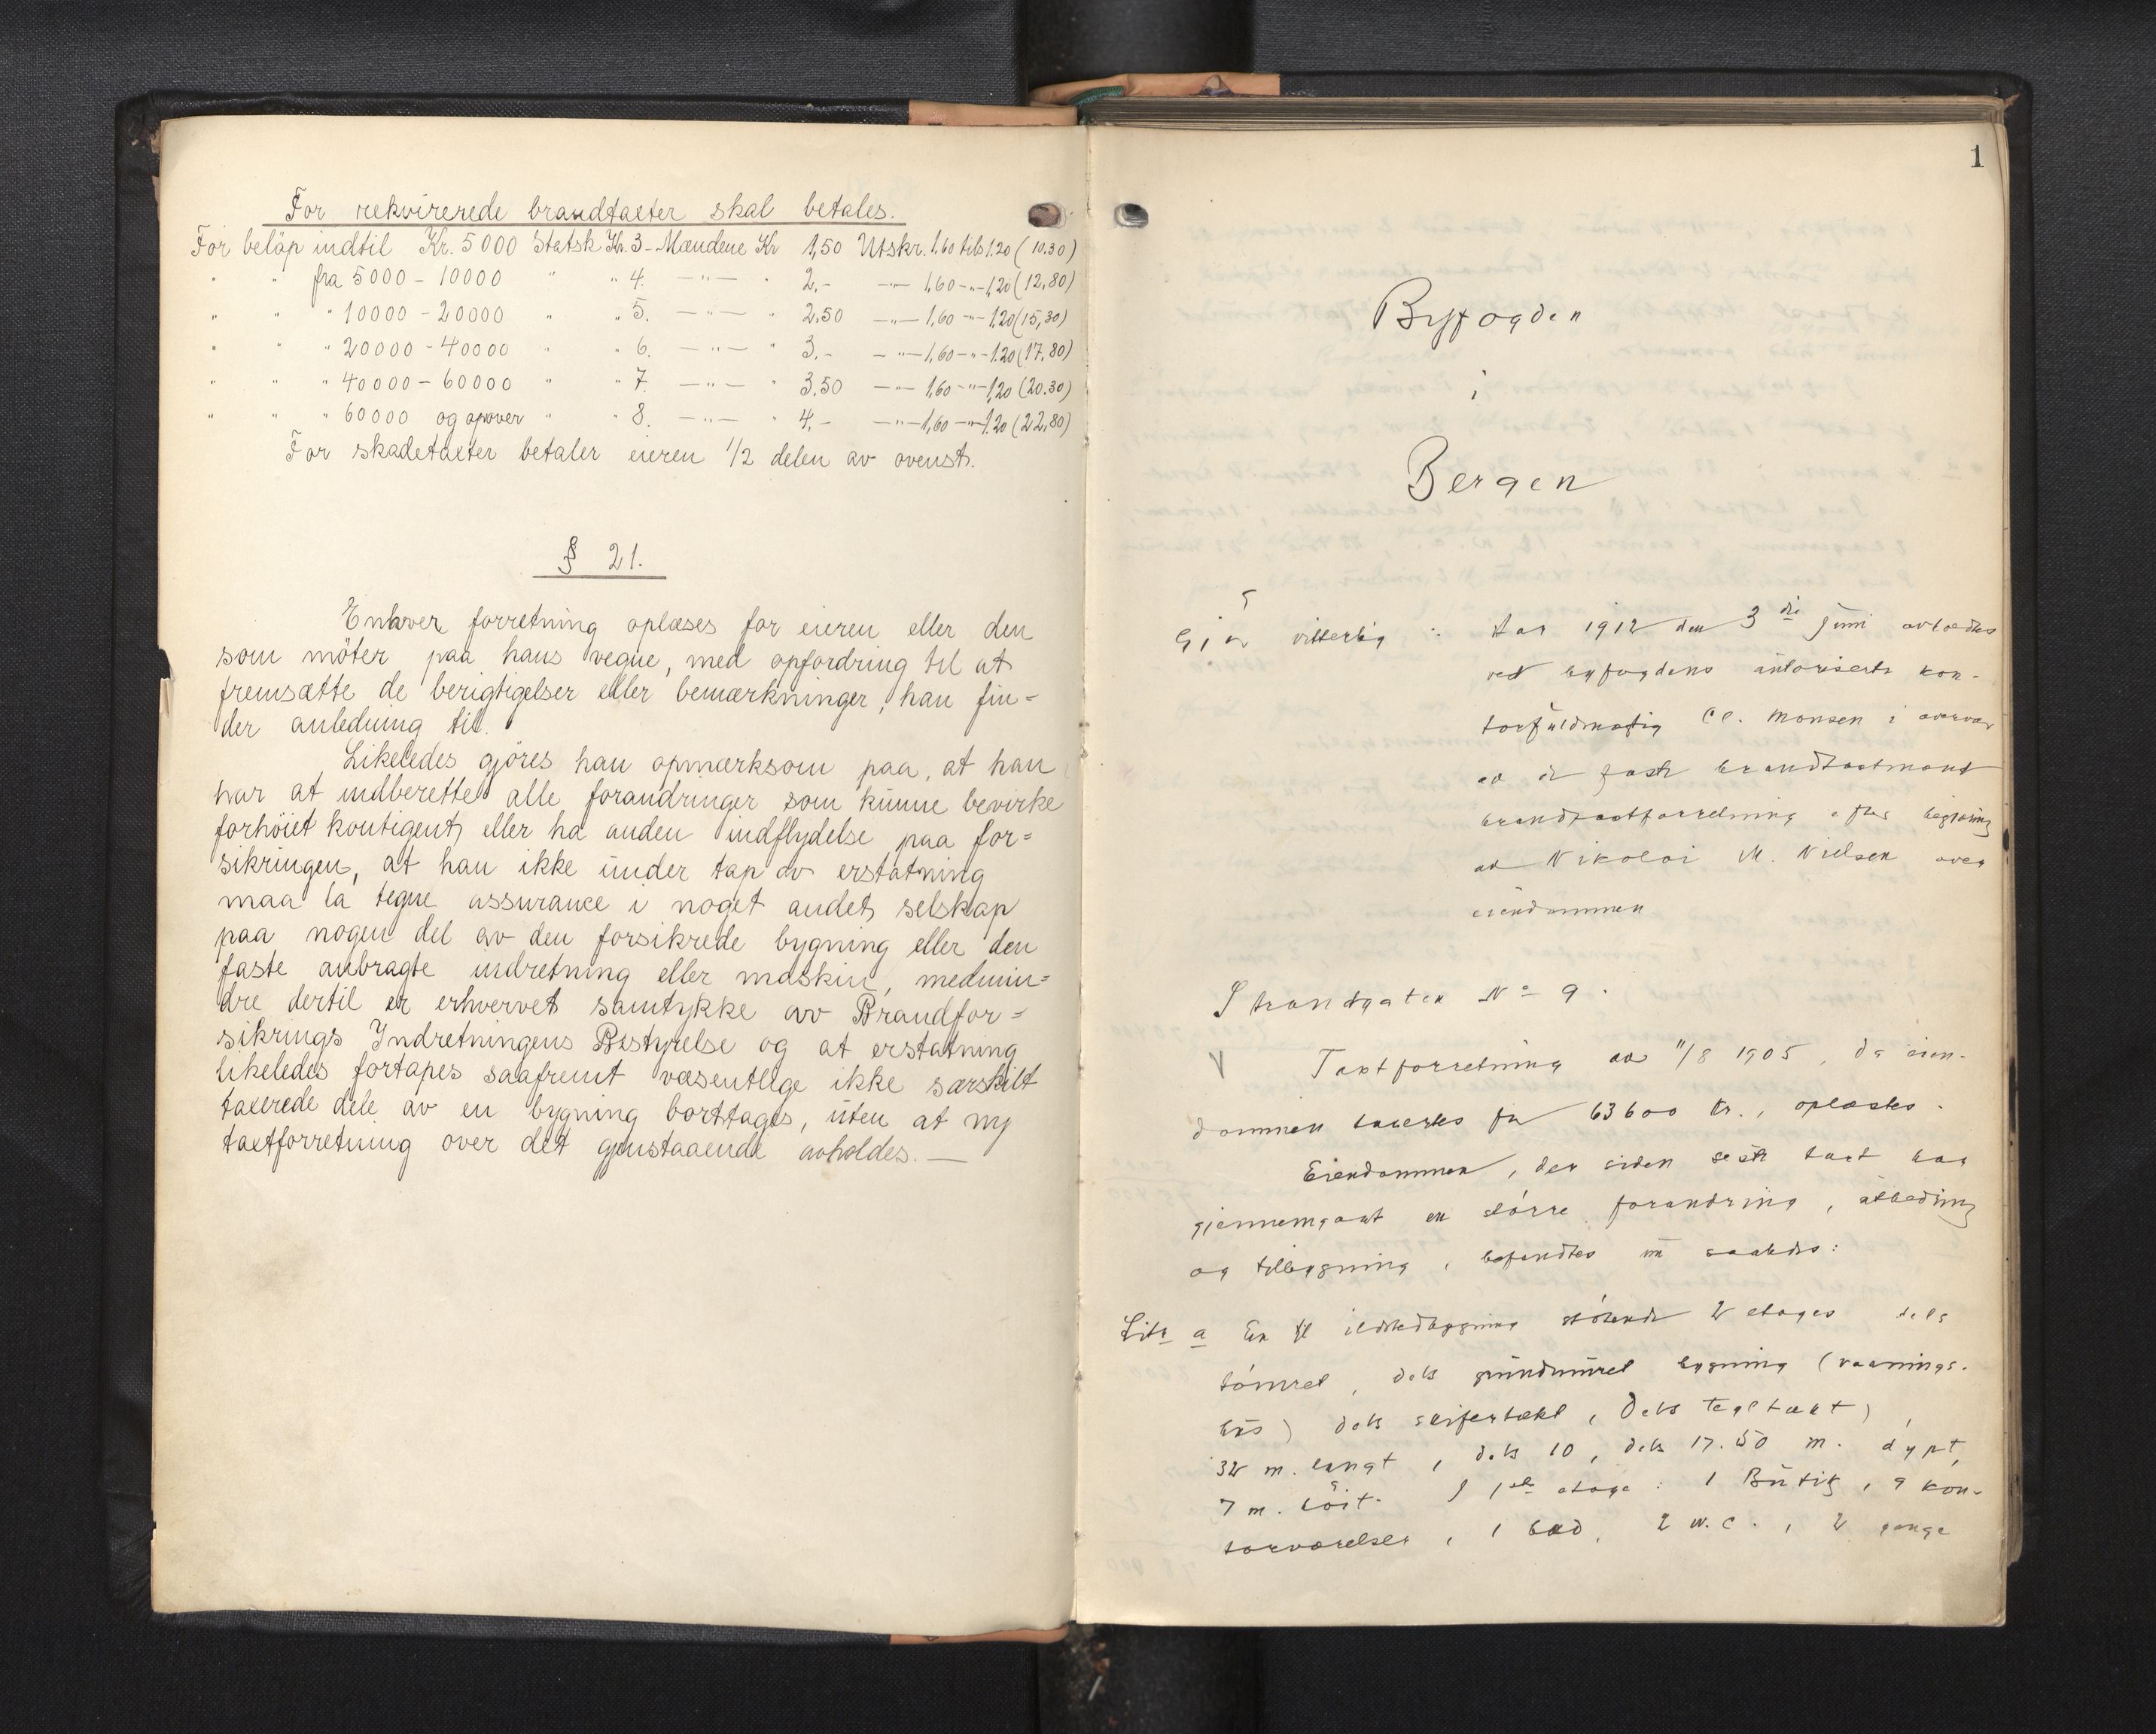 For rekvirerede brandtaxter skal betales.
For beløp indtil Kr. 5000 Statsk Kr. 3 - Mændene Kr 1,50 Utskr. 1.60 tils 1.20 (10.30)
" " fra 5000 - 10000 " " 4. —"— " 2,- —"— 1,60 -"- 1,20 (12,80)
" " " 10000 - 20000 " " 5. —"— " 2,50 —"— 1,60 -"- 1,20 (15,30)
" " " 20000 - 40000 " " 6. —"— " 3,- —"— 1,60 -"- 1.20 (17.80)
" " " 40000 - 60000 " " 7. —"— " 3,50 —"— 1,60 -"- 1,20 (20.30)
" " " 60000 og opover " " 8. —"— " 4,- —"— 1,60 -"- 1.20 (22,80)
For skadetaxter betaler eieren 1/2 delen av ovenst.
§ 21.
Enhver forretning oplæses for eieren eller den
som møter paa hans vegne, med opfordring til at
fremsætte de berigtigelser eller bemærkninger, han fin=
der anledning til.
Likeledes gjøres han opmærksom paa, at han
har at indberette alle forandringer som kunne bevirke
forhøiet kontigent eller ha anden indflydelse paa for=
sikringen, at han ikke under tap av erstatning
maa la tegne assurance i noget andet selskap
paa nogen del av den forsikrede bygning eller den
faste anbragte indretning eller maskin, medmin=
dre dertil er erhvervet samtykke av Brandfor=
sikrings Indretningens Bestyrelse og at erstatning
likeledes fortapes saafremt væsentlige ikke særskilt
taxerede dele av en bygning borttages, uten at ny
taxtforretning over det gjenstaaende avholdes. —
1
Byfogden
i
Bergen
Gjør vitterlig : Aar 1912 den 3die juni avholdtes
ved byfogdens autoriserte kon-
torfuldmægtig Cl. Monsen i overvær
av de faste brandtaxtmænd
brandtaxtforretning efter begjæring
av Nikolai M. Nielsen over
eiendommen
Strandgaten No 9.
V Taxtforretning av 11/8 1905, da eien-
dommen taxertes for 63600 kr., oplæstes.
Eiendommen, der siden siste taxt har
gjennemgaat en større forandring, utbedring
og tilbygning, befandtes nu saaledes:
Litr a En til ildstedbygning støtende 2 etages dels
tømret, dels grundmuret bygning (vaanings-
hus) dels skifertækt, dels tegltækt),
32 m. langt, dels 10, dels 17.50 m. dypt,
7 m. høit. I 1ste etage: 1 Butik, 9 kon-
torværelser, 1 bad, 2 w.c., 2 gange